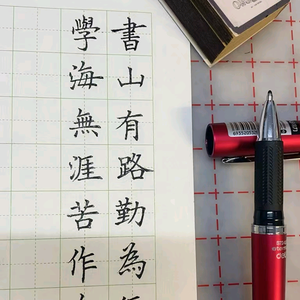 書山有路勤為
學海無涯苦作
deli